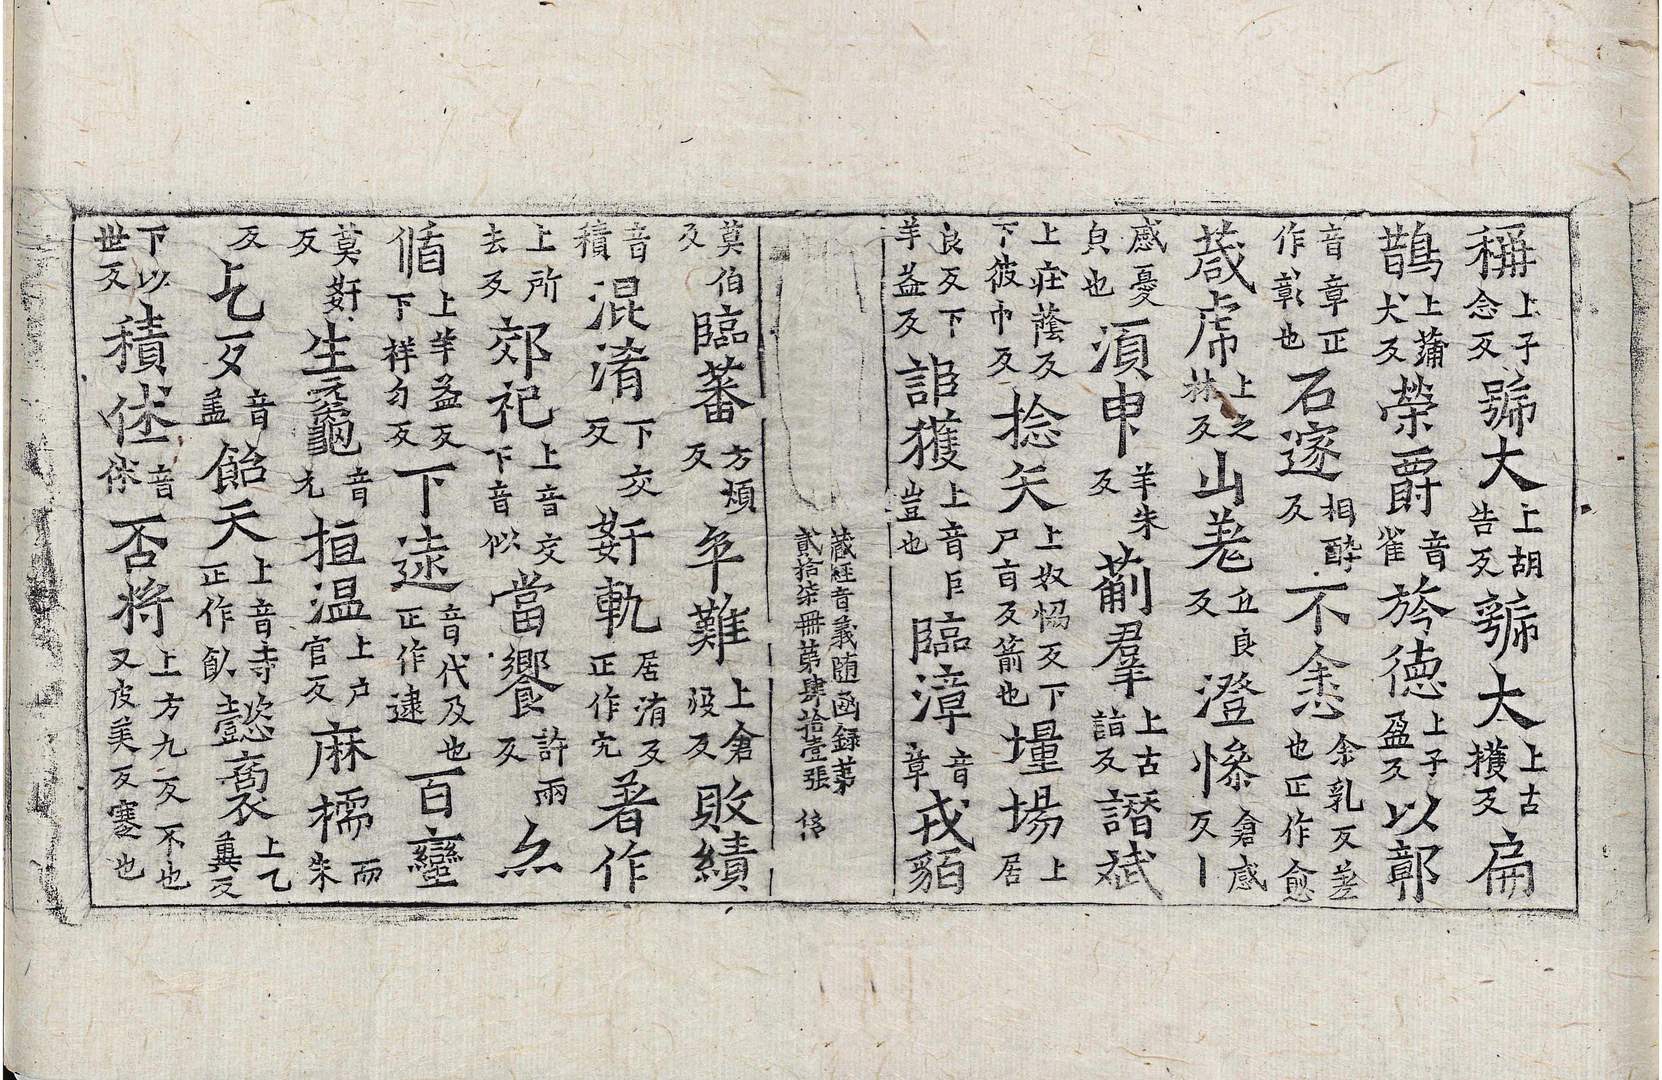 稱上子念反號大上胡告反號大上古攫反扁
鵲上蒲犬反榮爵音雀旍德上子盈反以鄣
音章正作彰也石邃相醉反不悆余乳反差也正作愈
葴席上之林反山羗丘良反澄憯倉感反丨
感憂皃也湏申羊朱反蒭羣上古詣反譖斌
上庄蔭反下彼巾反捻矢上奴恊反下尸盲反箭也壃場上居
良反下羊益反詎獲上音巨豈也臨漳音章戎貊
藏経音義随函録苐貳拾柒冊苐肆拾壹張
莫伯反臨蕃方煩反卒難上倉沒反敗績
音積混淆下交反姧軌居洧反正作宄著作
上所去反郊祀上音交下音似當饗許兩反尒
循上羊益反下祥勻反下逮音代及也正作逮百蠻
莫姧反生黿音元桓温上戸官反麻檽而朱反
上乞反音盖飴天上音寺正作飤懿裔上乙冀反
下以世反積怸音怵否將上方九反不也又皮美反塞也